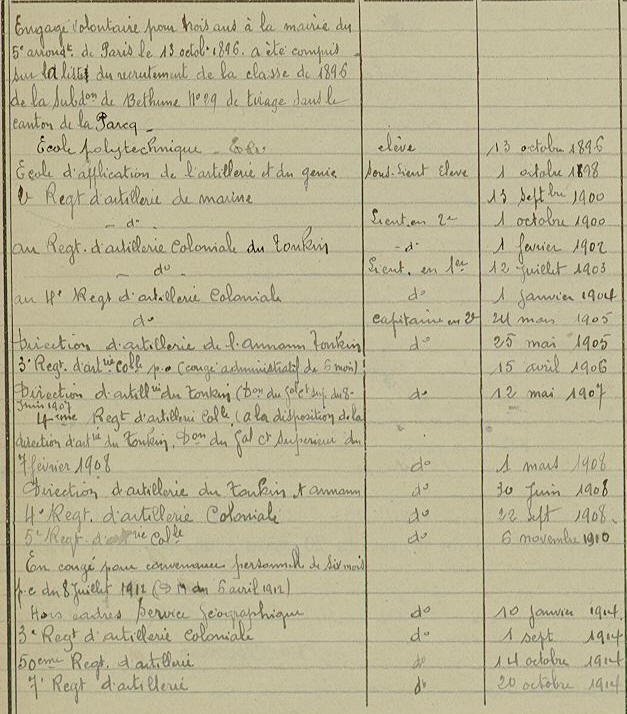 Engagé volontaire pour trois ans à la mairie du
5e arrondt. de Paris le 13 octob. 1896. a été compris
sur la liste du recrutement de la classe de 1896
de la Subdon de Bethune No 29 de tirage dans le
canton de la Parcq -
Ecole polytechnique - élève 13 octobre 1896
Ecole d'application de l'artillerie et du genie Sous-Lieut Eleve 1 octobre 1898
2e Regt d'artillerie de marine 13 septbre 1900
- do - Lieut. en 2e 1 octobre 1900
au Regt. d'artillerie Coloniale du Tonkin - do - 1 février 1902
- do Lieut. en 1er 12 Juillet 1903
au 4e Regt d'artillerie Coloniale do 1 janvier 1904
do Capitaine en 2e 24 mars 1905
Direction d'artillerie de l'annam Tonkin do 25 mai 1905
3e Regt. d'artrie Colle p.c (congé administratif de 6 mois) 15 avril 1906
Direction d'artillrie du Tonkin (Don du Gal Ct sup. du 8- do 12 mai 1907
Juin 1907
4eme Regt d'artillerie Colle. (a la disposition de la
direction d'artrie du Tonkin. Don du Gal Ct Superieur du
7 février 1908 do 1 mars 1908
Direction d'artillerie du Tonkin & annam do 30 Juin 1908
4e Regt. d'artillerie Coloniale do 22 sept 1908.
5e Regt. d'artrie Colle do 6 novembre 1910
En congé pour convenance personnelle de six mois
p.c du 8 Juillet 1912 ( du 5 avril 1912)
Hors cadres Service Géographique do 10 janvier 1914.
3e Regt d'artillerie coloniale do 1 sept 1914
50eme Regt. d'artillerie do 14 octobre 1914
7e Regt d'artillerie do 20 octobre 1914